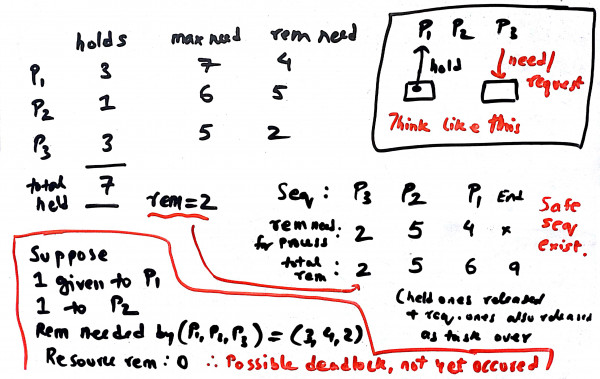 holds max need rem need
P1 3 7 4
P2 1 6 5
P3 3 5 2
total held 7 rem=2
P1 P2 P3
hold need/request
Think like this
Seq: P3 P2 P1 End
rem need for process: 2 5 4 x
total rem: 2 5 6 9
Safe seq exist.
(held ones released
+ req. ones also released
as task over
Suppose
1 given to P1
1 to P2
Rem needed by (P1, P2, P3) = (3, 4, 2)
Resource rem: 0 ∴ Possible deadlock, not yet occured